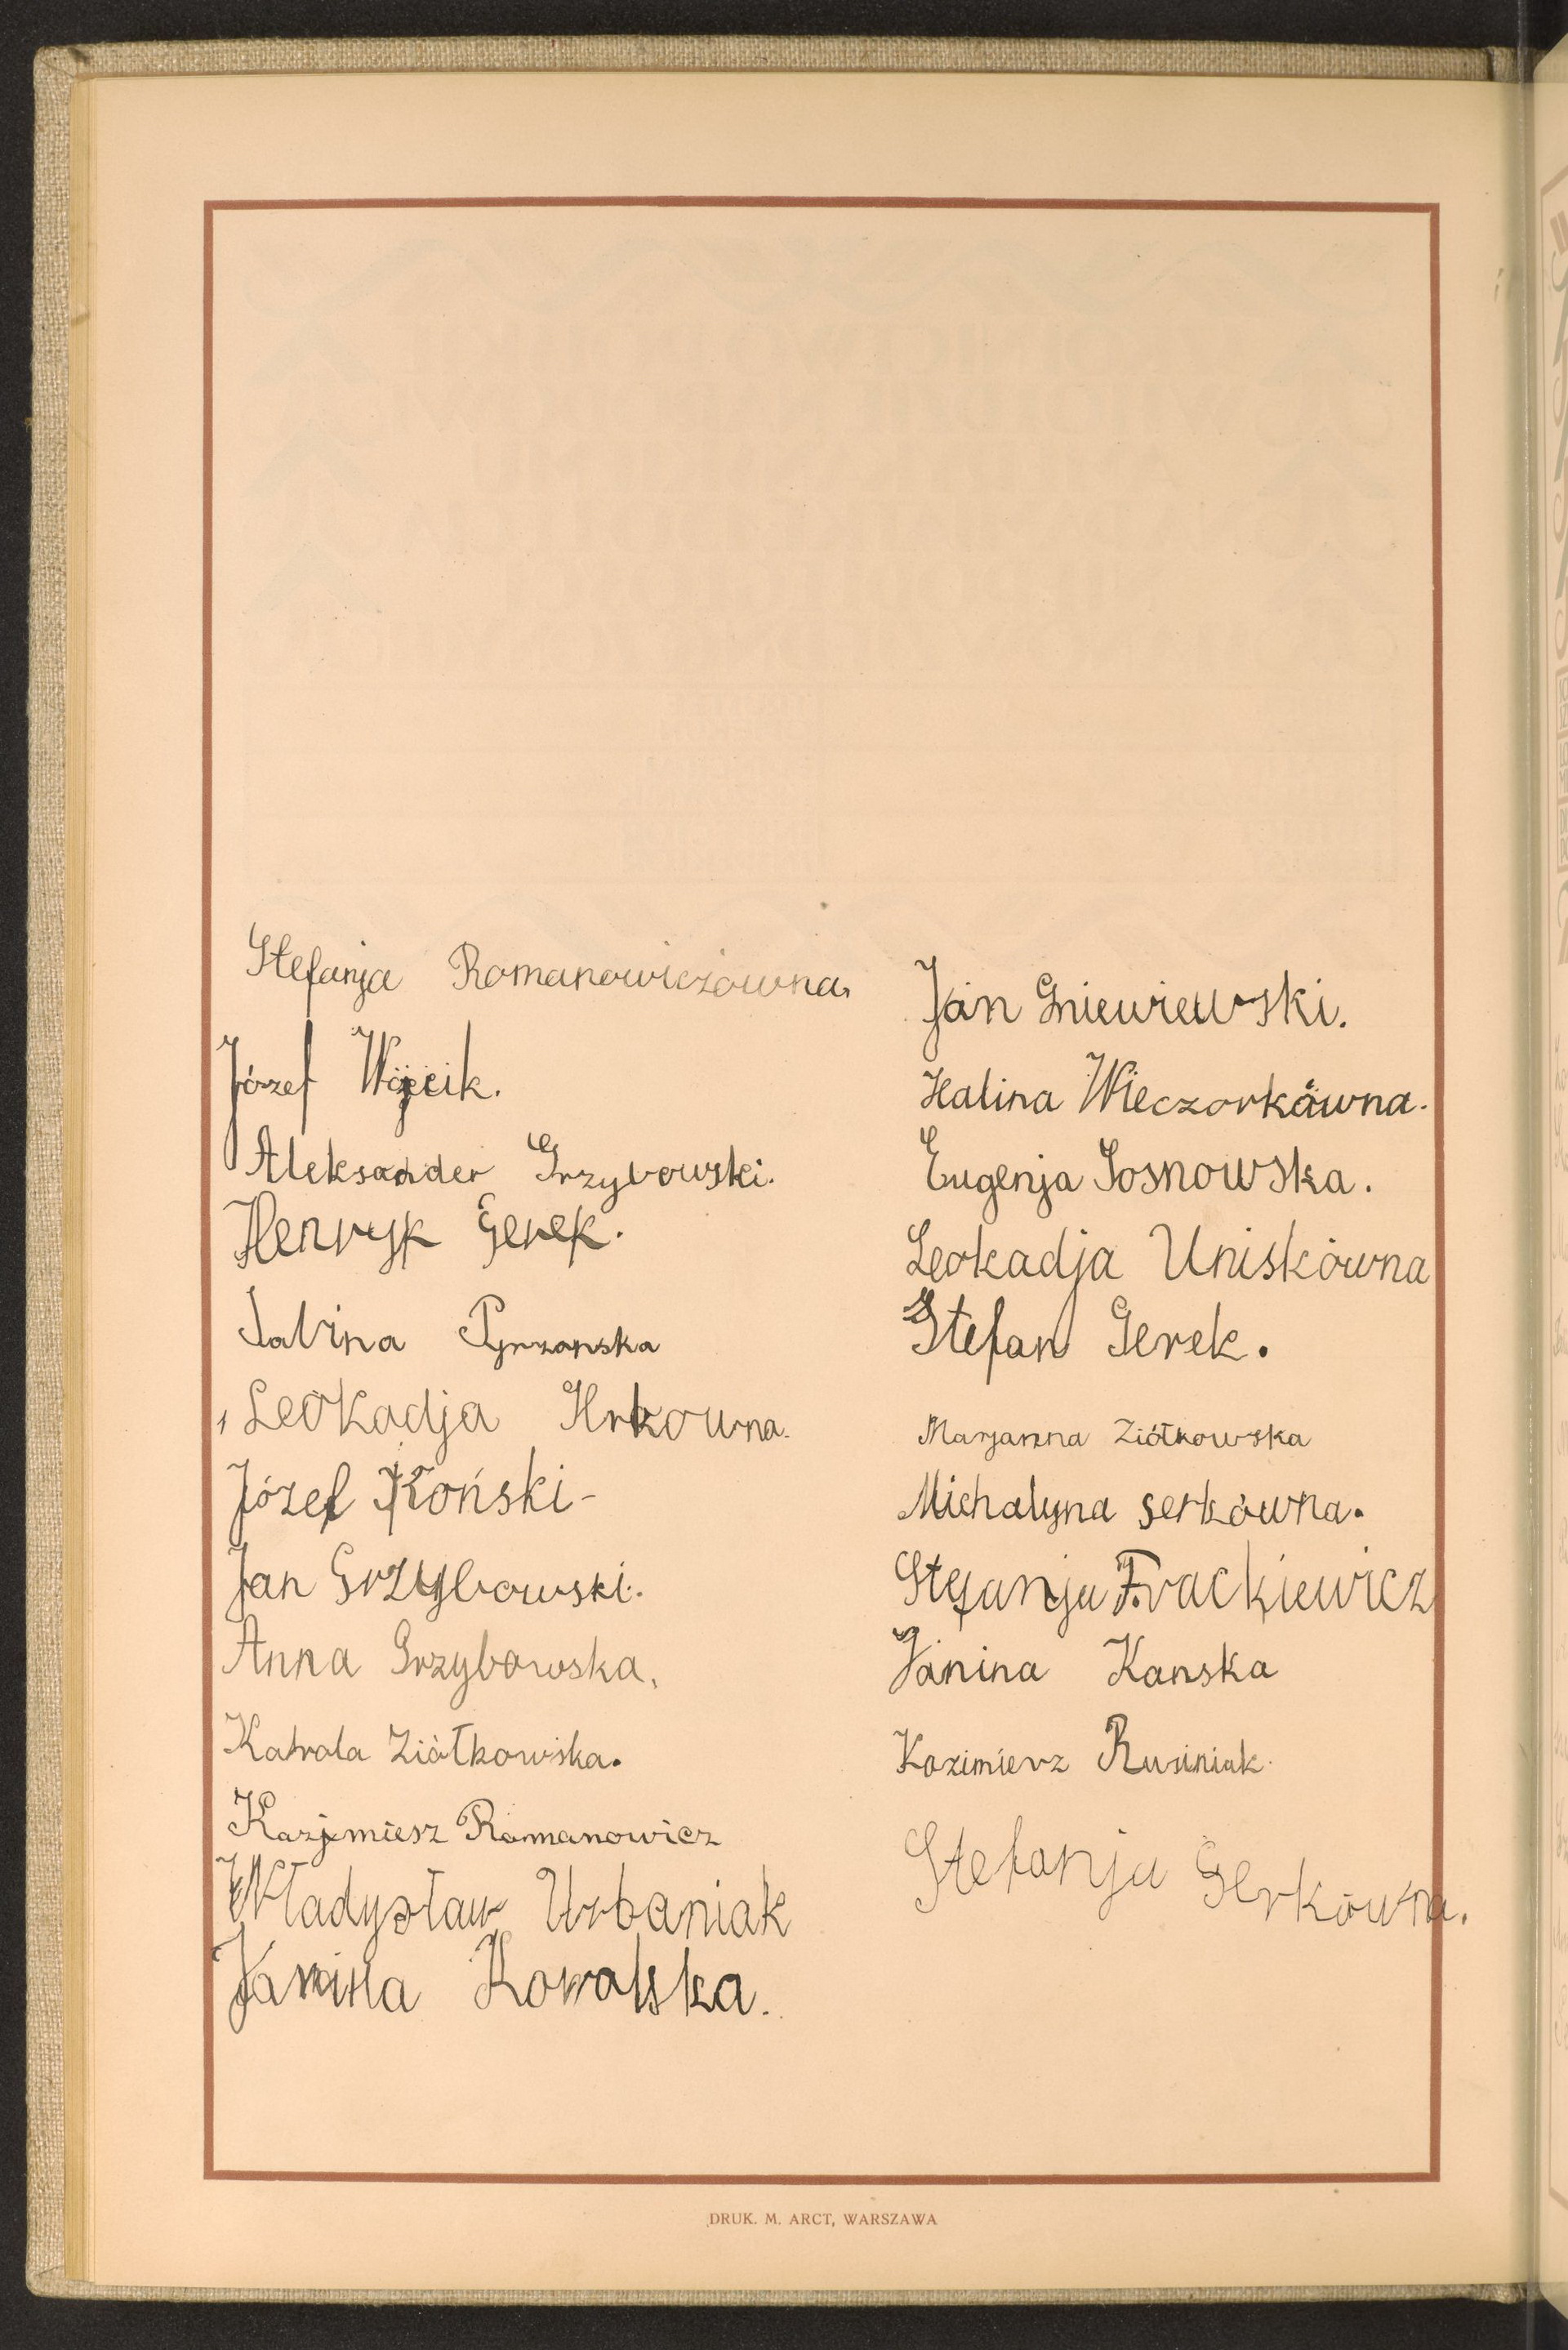 Stefanja Romanowiczówna.
Józef Wójcik.
Aleksander Grzybowski.
Henryk Gerek.
Sabina Pyrzanska
Leokadja Hrkowna.
Józef Koński-
Jan Grzybowski.
Anna Grzybowska.
Ziółkowska.
Kazjmiesz Romanowicz
Władysław Urbaniak
Janina Kowalska.
Jan Gniewiewski.
Halina Wieczorkówna.
Eugenja Sosnowska.
Leokadja Uniskówna
Stefan Gerek.
Marjanna Ziółkowska
Michalyna Serkówna.
Stefanja Frackiewicz
Janina Kanska
Kazimierz Rusiniak.
Stefanja Gerkówna.
DRUK. M. ARCT, WARSZAWA